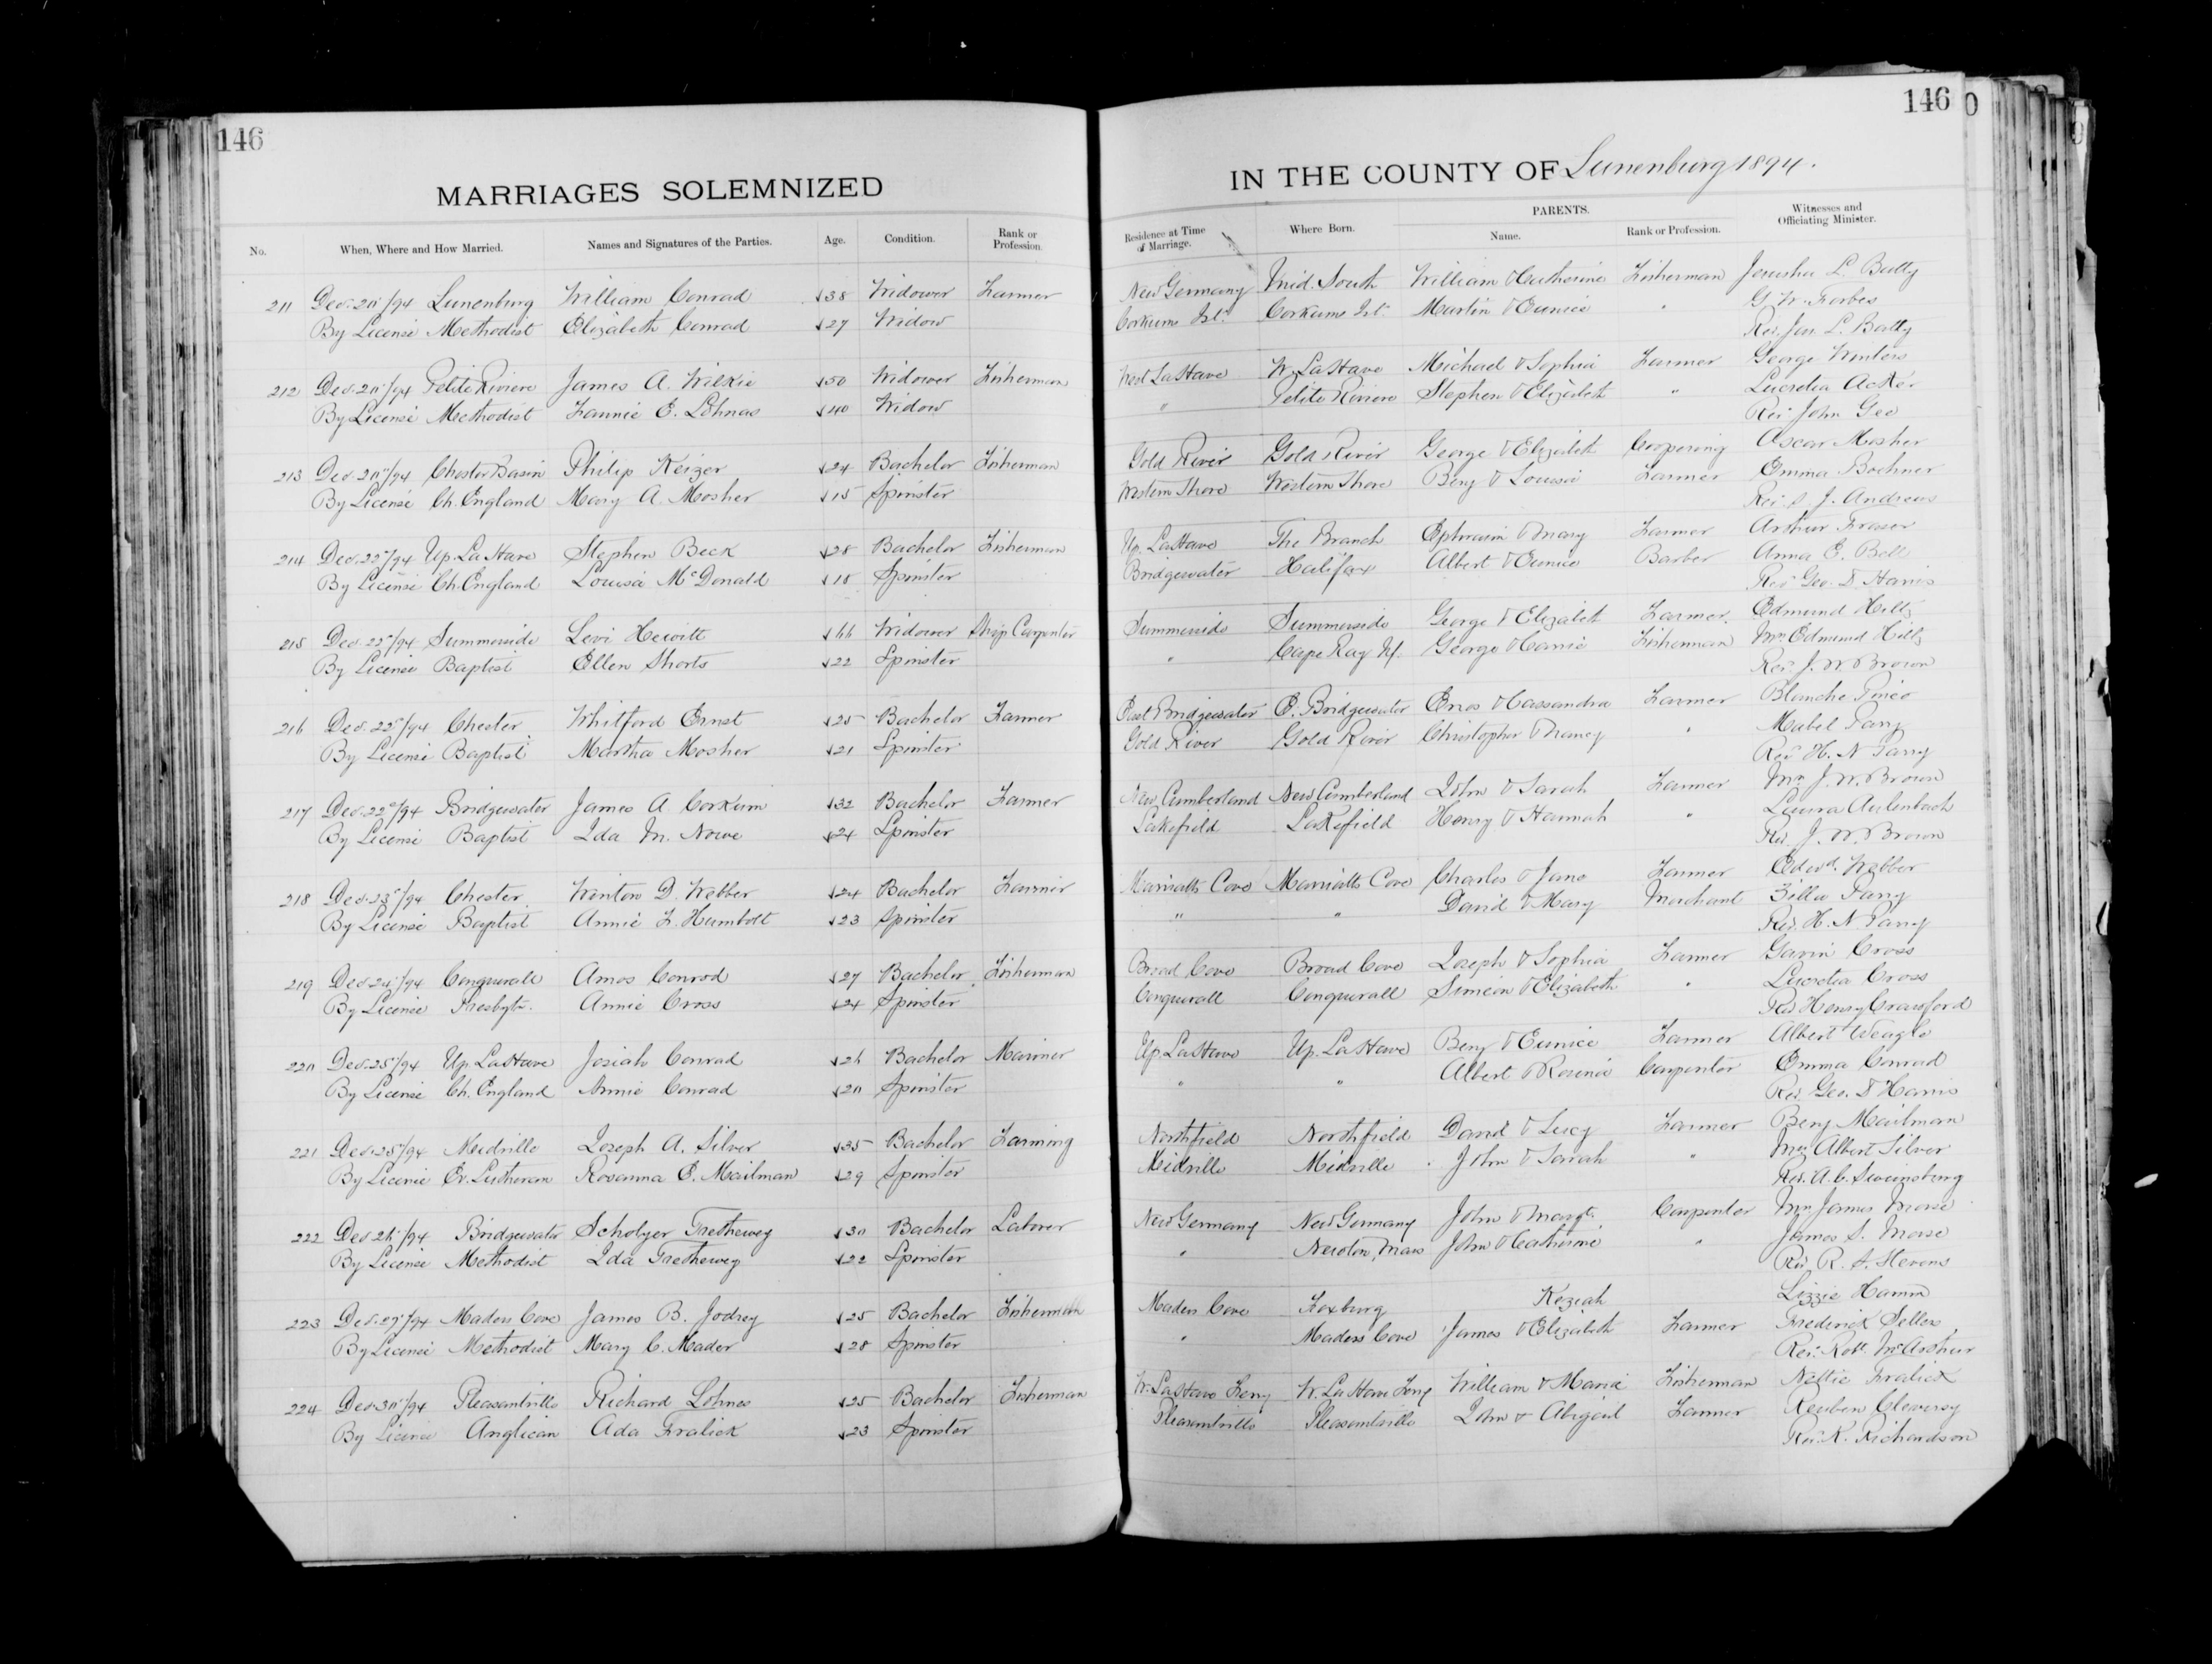 146
146
MARRIAGES SOLEMNIZED
IN THE COUNTY OF Lunenburg 1894.
No. When, Where and How Married. Names and Signatures of the Parties. Age. Condition. Rank or Profession. Residence at Time of Marriage. Where Born. PARENTS. Name. Rank or Profession. Witnesses and Officiating Minister.
211 Dec. 20/94 Lunenburg William Conrad 38 Widower Farmer New Germany Mid. South William & Catherine Fisherman Jerusha L. Batty
By License Methodist Elizabeth Conrad 27 Widow Corkums Isl. Corkums Isl. Martin & Eunice " G. W. Forbes
Rev. Jos. L. Batty
212 Dec. 20/94 Petite Riviere James A. Wilkie 50 Widower Fisherman West LaHave W. LaHave Michael & Sophia Farmer George Winters
By License Methodist Fannie E. Lohnas 40 Widow " Petite Riviere Stephen & Elizabeth " Lucretia Acker
Rev. John Gee
213 Dec. 20/94 Chester Basin Philip Keizer 24 Bachelor Fisherman Gold River Gold River George & Elizabeth Coopering Ascar Mosher
By License Ch. England Mary A. Mosher 18 Spinster Western Shore Western Shore Benj & Louisa Farmer Emma Bochner
Rev. J. Andrews
214 Dec. 22/94 Up. LaHave Stephen Beck 28 Bachelor Fisherman Up. LaHave The Branch Ephraim & Mary Farmer Arthur Fraser
By License Ch. England Louisa McDonald 18 Spinster Bridgewater Halifax Albert & Eunice Barber Anna E. Bell
Rev. Geo. D Harris
215 Dec. 22/94 Summerside Levi Hewitt 66 Widower Ship Carpenter Summerside Summerside George & Elizabeth Farmer. Edmund Hilty
By License Baptist Ellen Shorts 22 Spinster " Cape Ray Nf. George & Fannie Fisherman Mrs Edmund Hilty
Rev. J. W. Brown
216 Dec. 22/94 Chester Whitford Ernst 25 Bachelor Farmer East Bridgewater E. Bridgewater Enos & Cassandra Farmer Blanche Pineo
By License Baptist Martha Mosher 21 Spinster Gold River Gold River Christopher & Nancy " Mabel Parry
Rev H. N Parry
217 Dec. 22/94 Bridgewater James A Corkum 32 Bachelor Farmer New Cumberland New Cumberland John & Sarah Farmer Mrs J. W. Brown
By License Baptist Ida M. Nowe 24 Spinster Lakefield Lakefield Henry & Hannah " Laura Aulenbach
Rev. J. W. Brown
218 Dec. 23/94 Chester Winton D. Webber 24 Bachelor Farmer Marriatts Cove Marriatts Cove Charles & Jane Farmer Edwd. Webber
By License Baptist Annie L. Humbolt 23 Spinster " " David & Mary Merchant Zilla Parry
Rev. H. N Parry
219 Dec. 24/94 Conquerall Amos Conrod 27 Bachelor Fisherman Broad Cove Broad Cove Joseph & Sophia Farmer Gavin Cross
By License Presbytn. Annie Cross 24 Spinster Conquerall Conquerall Simeon & Elizabeth " Lucretia Cross
Rev Henry Crawford
220 Dec. 25/94 Up. LaHave Josiah Conrad 26 Bachelor Mariner Up. LaHave Up. LaHave Benj & Eunice Farmer Albert Weagle
By License Ch. England Annie Conrad 20 Spinster " " Albert & Rosina Carpenter Emma Conrad
Rev. Geo. D Harris
221 Dec. 25/94 Midville Joseph A. Silver 35 Bachelor Farming Northfield Northfield David & Lucy Farmer Benj Mailman
By License Ev. Lutheran Rosanna E. Mailman 29 Spinster Midville Midville John & Sarah " Mrs Albert Silver
Rev. A. C. Swinsburg
222 Dec. 26/94 Bridgewater Scholyer Trethewey 30 Bachelor Laborer New Germany New Germany John & Margt. Carpenter Mrs James Morse
By License Methodist Ida Trethewey 22 Spinster " Newton, Mass John & Catherine " James S. Morse
Rev. R. S. Stevens
223 Dec. 27/94 Maders Cove James B. Jodrey 25 Bachelor Fisherman Maders Cove Foxburg Keziah Lizzie Hamm
By License Methodist Mary C. Mader 28 Spinster " Maders Cove James & Elizabeth Farmer Frederick Sellers
Rev. Robt. McArthur
224 Dec. 30/94 Pleasantville Richard Lohnes 25 Bachelor Fisherman W. LaHave Ferry W. LaHave Ferry William & Maria Fisherman Nellie Fralick
By License Anglican Ada Fralick 23 Spinster Pleasantville Pleasantville John & Abigail Farmer Reuben Cleversy
Rev. K. Richardson